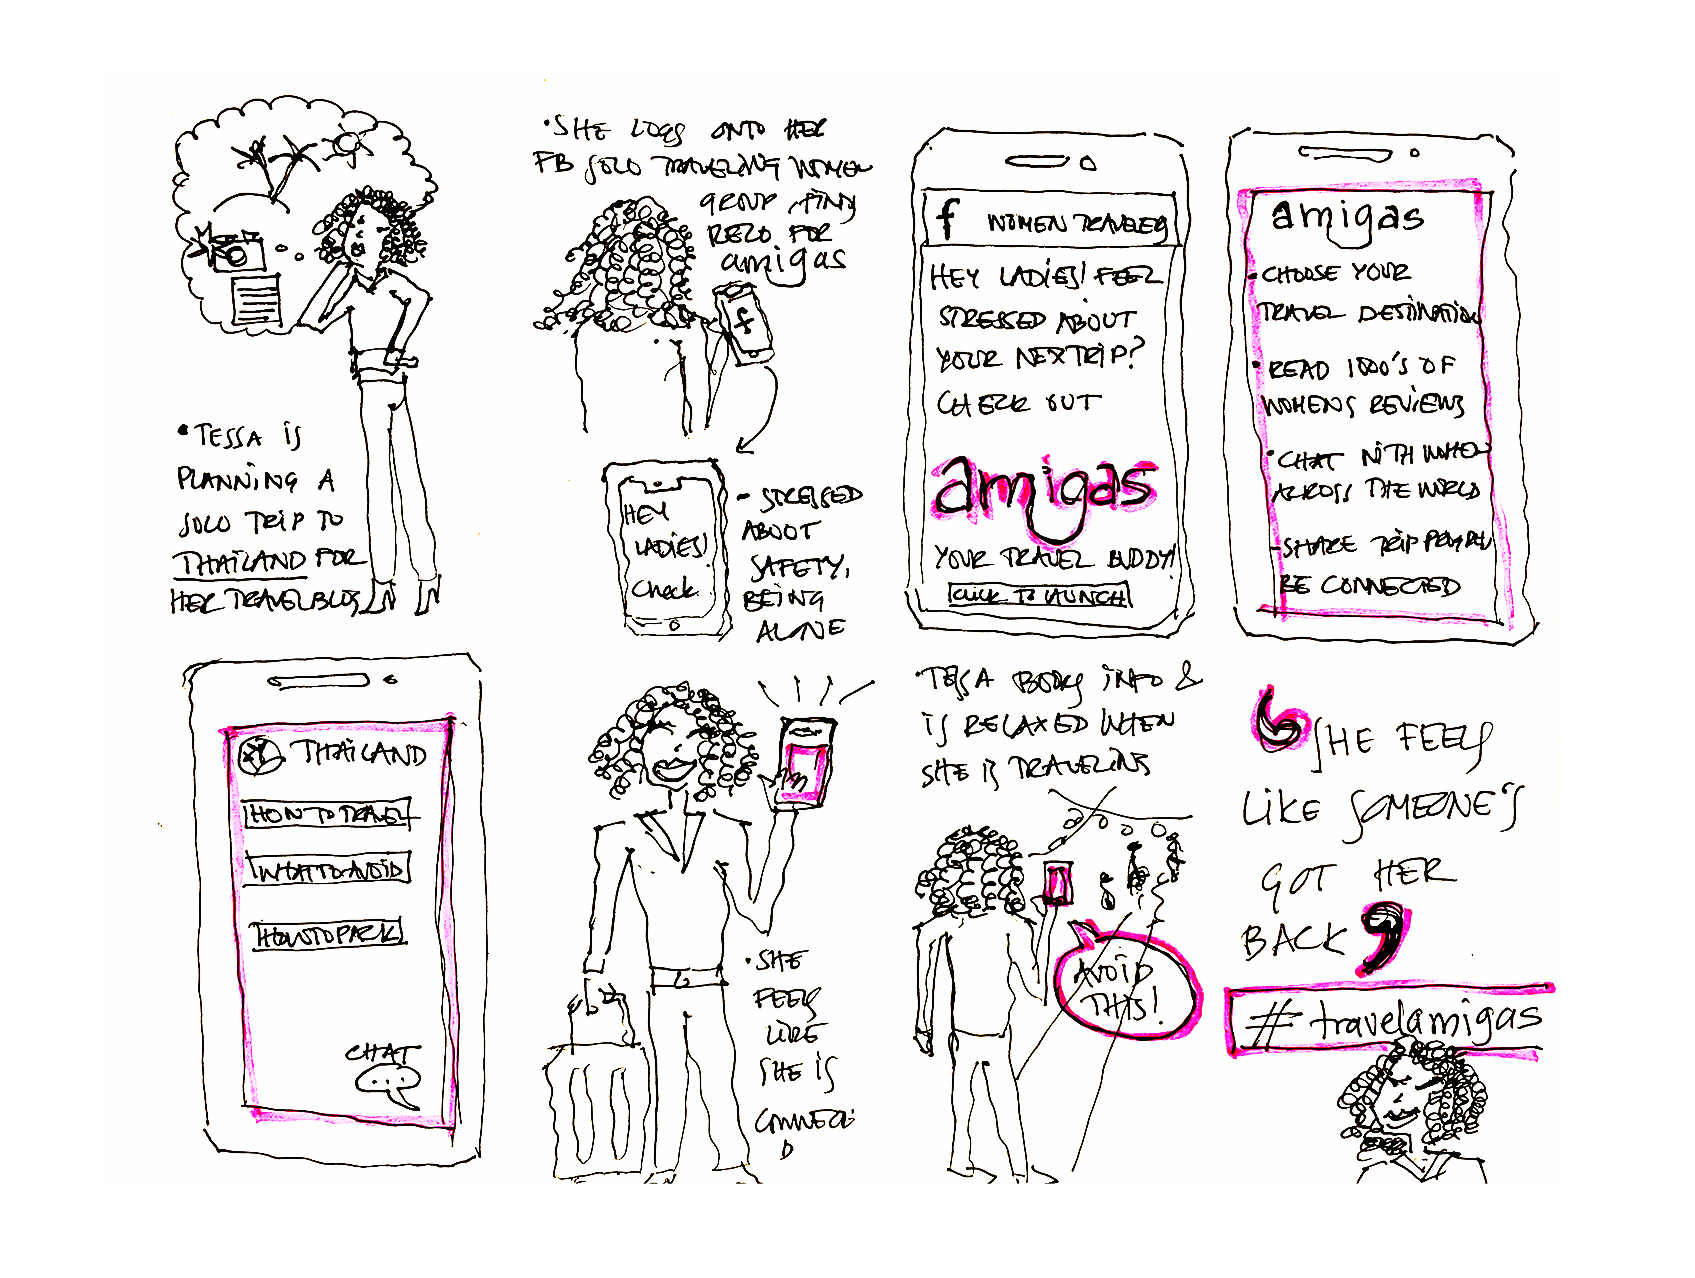 •TESSA IS
PLANNING A
SOLO TRIP TO
THAILAND FOR
HER TRAVELBLOG
•SHE LOGS ONTO HER
FB SOLO TRAVELING WOMEN
GROUP FOR
amigas
f
HEY
LADIES!
Check
- STRESSED
ABOUT
SAFETY,
BEING
ALONE
f WOMEN TRAVELERS
HEY LADIES! FEEL
STRESSED ABOUT
YOUR NEXTRIP?
CHECK OUT
amigas
YOUR TRAVEL BUDDY!
CLICK TO LAUNCH
amigas
•CHOOSE YOUR
TRAVEL DESTINATION
•READ 1000'S OF
WOMENS REVIEWS
•CHAT WITH WOMEN
ACROSS THE WORLD
-SHARE TRIP
BE CONNECTED
THAILAND
HOW TO TRAVEL
WHAT TO AVOID
HOW TO PACK
CHAT
...
•SHE
FEELS
LIKE
SHE IS
CONNECTE
D
•TESSA BOOKS INFO &
IS RELAXED WHEN
SHE IS TRAVELING
AVOID
THIS!
SHE FEELS
LIKE SOMEONE'S
GOT HER
BACK
#travelamigas